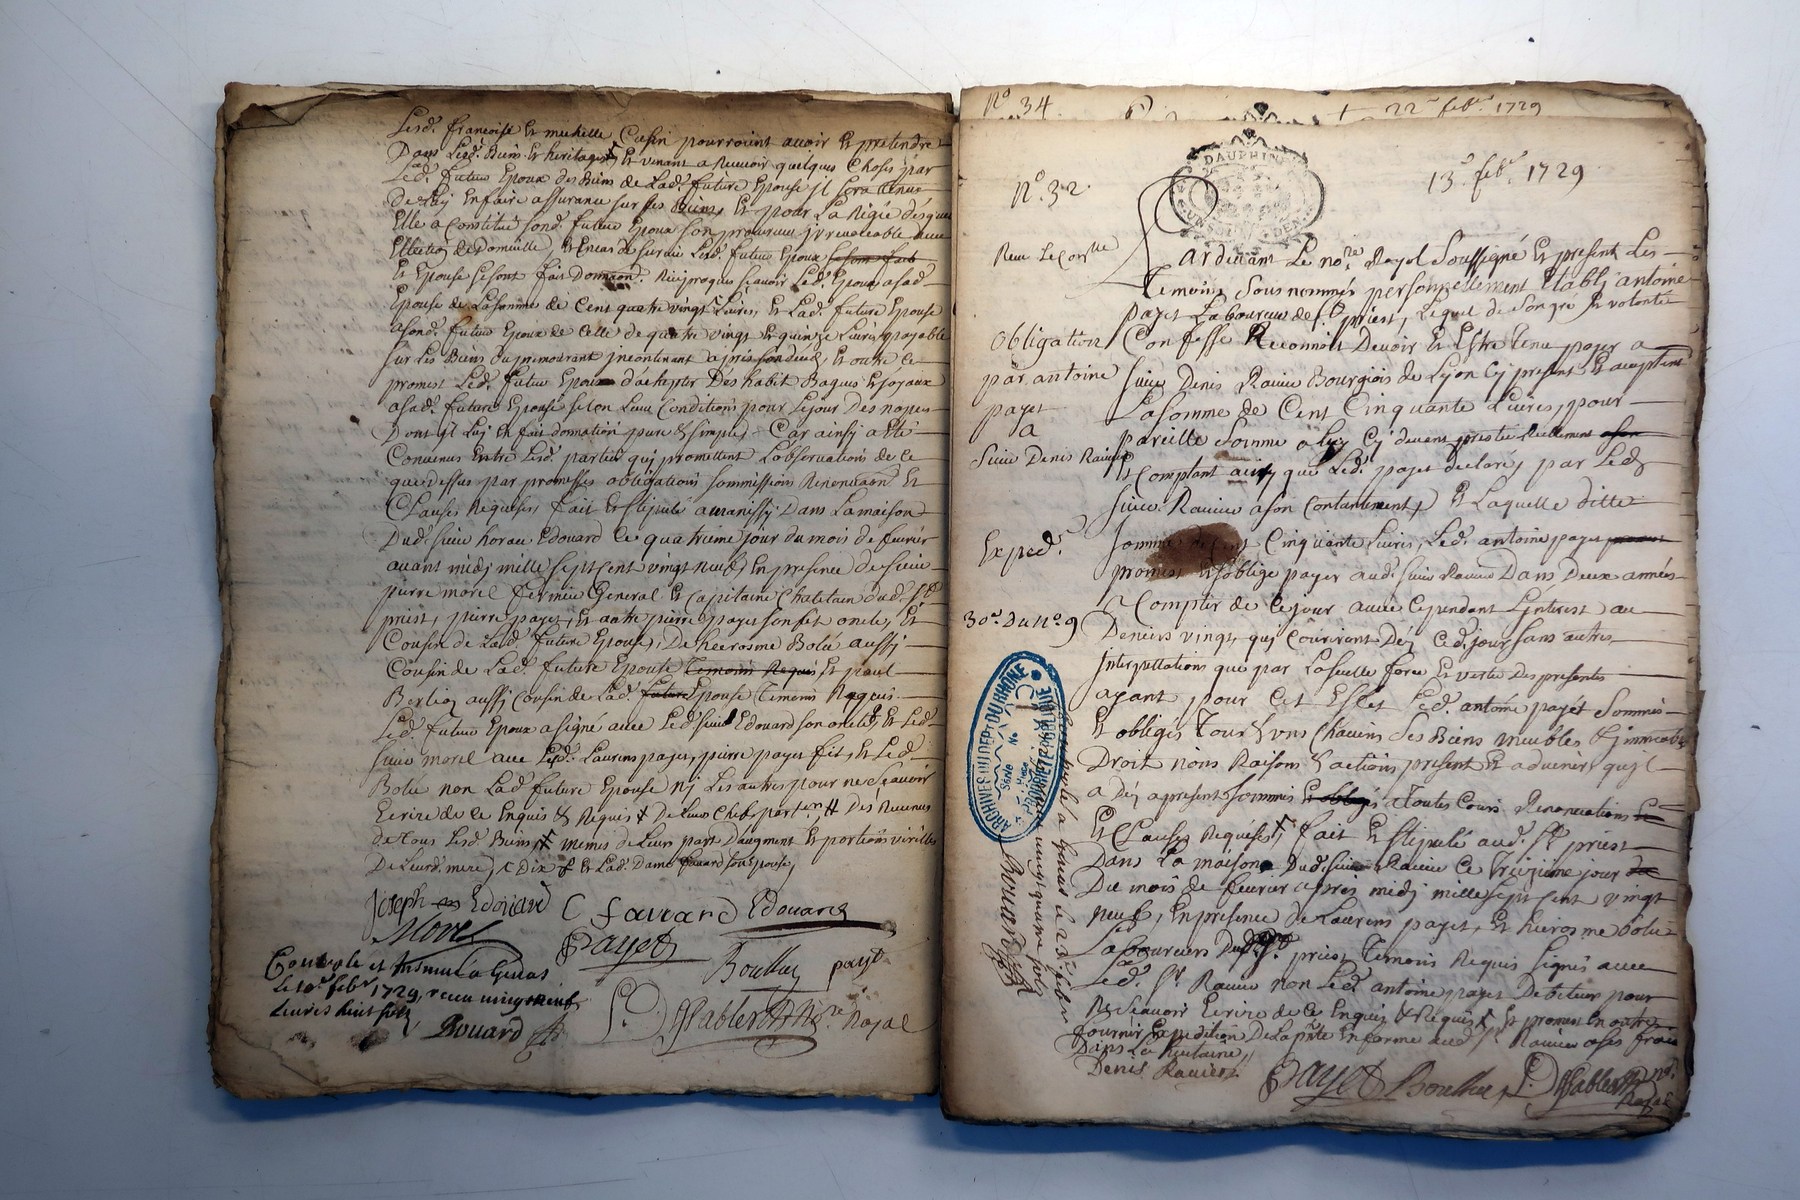 Lesd. francoise Et michelle Cusin pourroint avoir Et pretendre
Dans Lesd. Biens Et heritages, Et venant a Recevoir quelques Choses par
Led. futeur Epoux des Biens de Lad. future Epouse jl sera tenus
de Luy En faire assurance sur ses Biens, Et pour La Regie desquels
Elle a Constitué sond. futeur Epoux son procureur jrrevocable avec
Ellection de Domicille, Et En cas de survie Lesd. futeur Epoux
Et Epouse se sont fait Donnaon. Reciproque scavoir Led. Epoux a sad.
Epouse de La somme de Cent quatre vingt Livres, Et Lad. future Epouse
a sond. futeur Epoux de Celle de quatre vingt Et quinze Livres, payable
sur Les Biens du premourant jncontinant apres son deced, Et outre ce
promest Led. futeur Epoux d'achepter Des habit Bagues Et joyaux
a sad. future Epouse selon Leur Conditions pour Le jour Des nopces
Dont jl Luy En fait donnation pure & simple, Car ainsy a Eté
Convenus Entre Lesd. parties quj promettent L'observations de ce
que dessus par promesses obligations sommissions Renonciaon Et
Clauses Requises, fait Et stipullé a Manissy Dans La maison
Dud. sieur horau Edouard Ce quatrieme jour du mois de fevrier
avant midj mille sept cent vingt neuf, En presence de sieur
pierre morel fermier General Et Capitaine Chatelain dud. St.
priest, pierre payet, Et autre pierre payet son fils oncle, Et
Cousin de Lad. future Epouse, De hierosme Bolu aussj
Cousin de Lad. future Epouse Temoins Requis Et paul
Berlioz aussj Cousin de Lad. future Epouse Temoins Requis
Led. futeur Epoux a signé avec Led. sieur Edouard son oncle, Et Led.
sieur morel avec Lesd. Laurens payet, pierre payet fils, Et Led.
Bolu non Lad. future Epouse nj Les autres pour ne scavoir
Ecrire de ce Enquis & Requis
de tous Lesd. Biens, mêmes de Leurs part Daugment Et portions virilles
De Leurd. mere, Et Lad. Dame favard son Epouse,
Joseph Edouard C favard Edouard
Morel Payet Boullu payet
Controlé et Insinué a Genas
Le 10e. febr. 1729, receu vingt neuf
Livres huit sols
Bouard Nre. Royal
No. 34 22e febr. 1729
DAUPHINE
DEN.
No. 32. 13e. febr. 1729
Pardevant Le nore. Royal Soussigné Et present Les
Temoins Sous nommés personnellement Etablj antoine
payet Laboureur de St. priest, Lequel de son gré Et volonté
Confesse Reconnoit Devoir Et Estre tenu payer a
sieur Denis Ravier Bourgeois de Lyon Cy present Et acceptant
La somme de Cent Cinquante Livres, pour
pareille somme a Luy Cy devant prestée Reellement a son
Et Comptant ainsy que Led. payet declare, par Led.
sieur Ravier a son Contantement, Et Laquelle ditte
somme de Cent Cinquante Livres, Led. antoine payet
promest Et s'oblige payer aud. sieur Ravier Dans Deux années
a Compter de Ce jour avec Cependant L'jnterest au
Deniers vingt, quj Couriront Dez Ced. jour sans autres
jnterpellations que par La seulle force Et vertu Des presentes
ayant pour Cet Effet Led. antoine payet sommis
Et obligés Tous & uns Chacuns ses Biens meubles & jmmeubles
Droit noms Raisons & actions present Et advenir, qu'jl
a Dez a present sommis Et obligés a Toutes Cours Renonciations Et
Et Clauses Requises, fait Et stipulé aud. St. priest
Dans La maison Dud. sieur Ravier Ce Treizieme jour du
Du mois de fevrier apres midj mille sept cent vingt
neuf, En presence de Laurens payet, Et hierosme Bolu
Laboureurs Dud. St. priest Temoins Requis signés avec
Led. Sr. Ravier non Led. antoine payet Debiteur pour
ne scavoir Ecrire de ce Enquis & Requis Et promest En outre
fournir Expedition De La pnte En forme aud. Sr. Ravier a ses frais
Dans La huitaine,
Denis Ravier Payet Boullu
nre. Royal
obligation
par antoine
payet
a
sieur Denis Ravier
Exped.
30e. Du No. 9
ARCHIVES DU DEPT DU RHONE
Série No
PROPRIETE PUBLIQUE
a Genas Le 23e febr
vingt quatre sols
Bouard